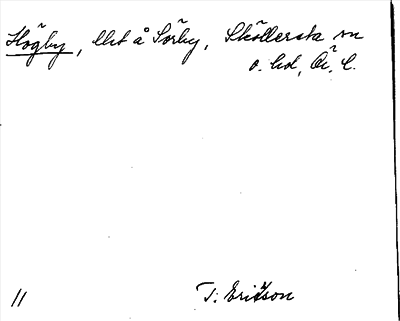 Högby, lht å Sörby, Sköllersta sn
o. hd, Ör. l.
11 T: Ericson